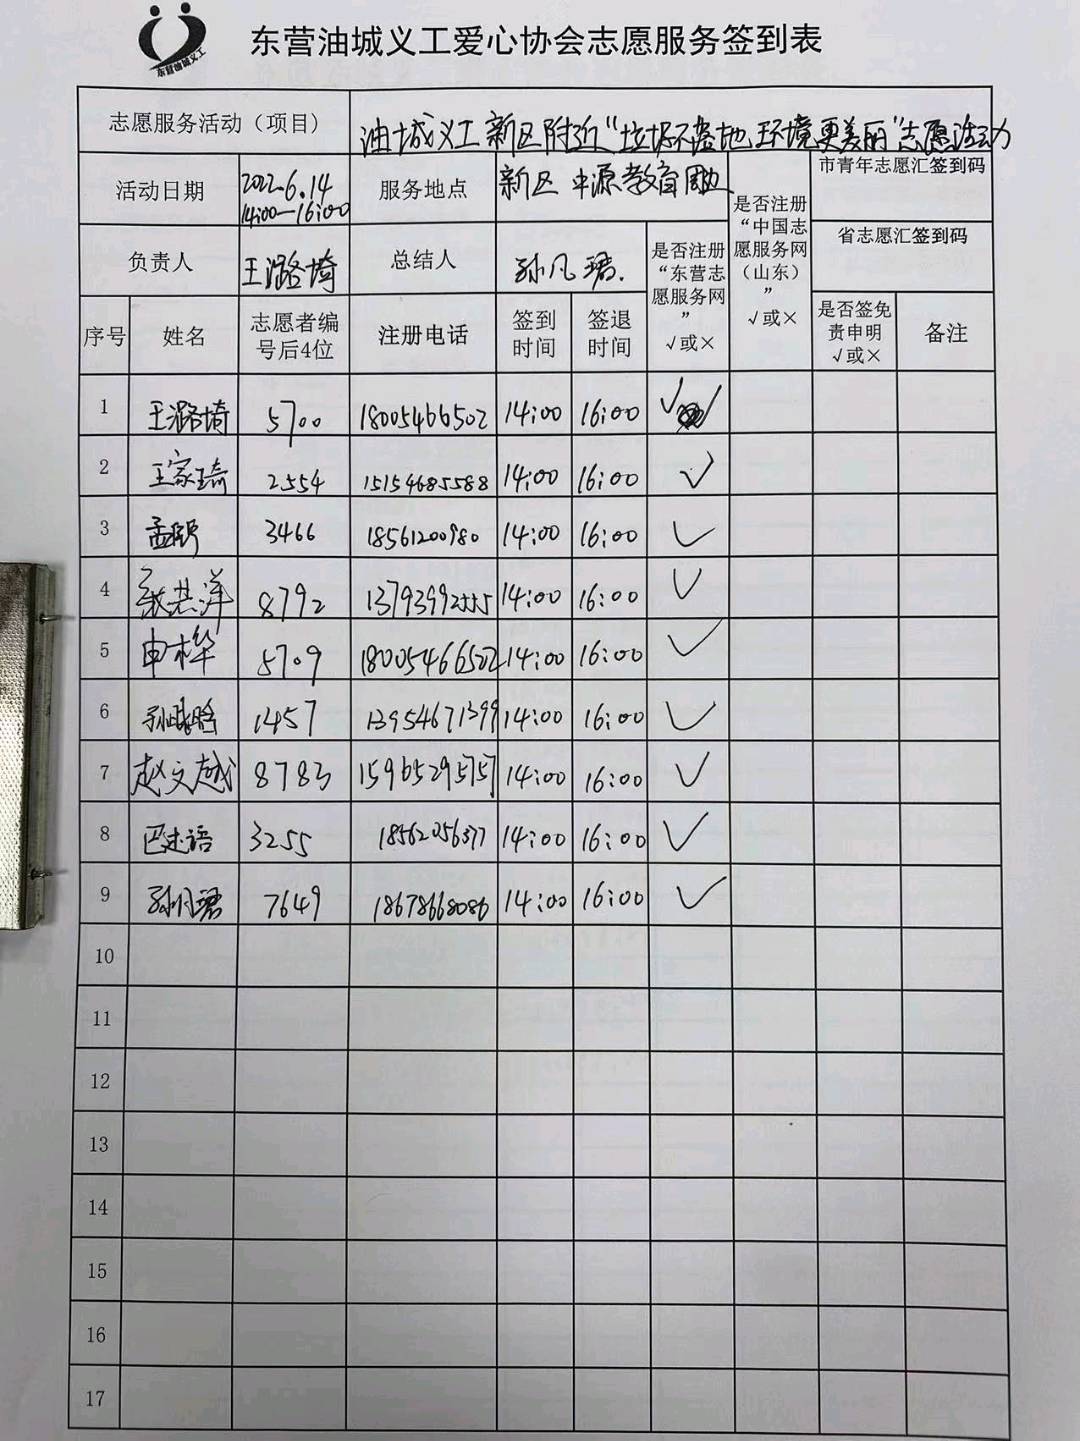 东营油城义工
东营油城义工爱心协会志愿服务签到表
志愿服务活动（项目） 油城义工新区附近“垃圾不落地 环境更美丽”志愿活动
活动日期 2022.6.14 14:00—16:00 服务地点 新区 中源教育周边
市青年志愿汇签到码
负责人 王潞埼 总结人 孙凡珺.
省志愿汇签到码
是否注册“东营志愿服务网” √或×
是否注册“中国志愿服务网（山东）” √或×
序号 姓名 志愿者编号后4位 注册电话 签到时间 签退时间 是否签免责申明 √或× 备注
1 王潞埼 5700 18005466502 14:00 16:00 √
2 王家琦 2554 15154685588 14:00 16:00 √
3 孟熙 3466 18561200980 14:00 16:00 √
4 张洪洋 8792 13793992555 14:00 16:00 √
5 申桦 5709 18005466502 14:00 16:00 √
6 孙 1457 13954671399 14:00 16:00 √
7 赵文越 8783 15965295757 14:00 16:00 √
8 巴述语 3255 18562056377 14:00 16:00 √
9 孙凡珺 7649 18678668086 14:00 16:00 √
10
11
12
13
14
15
16
17